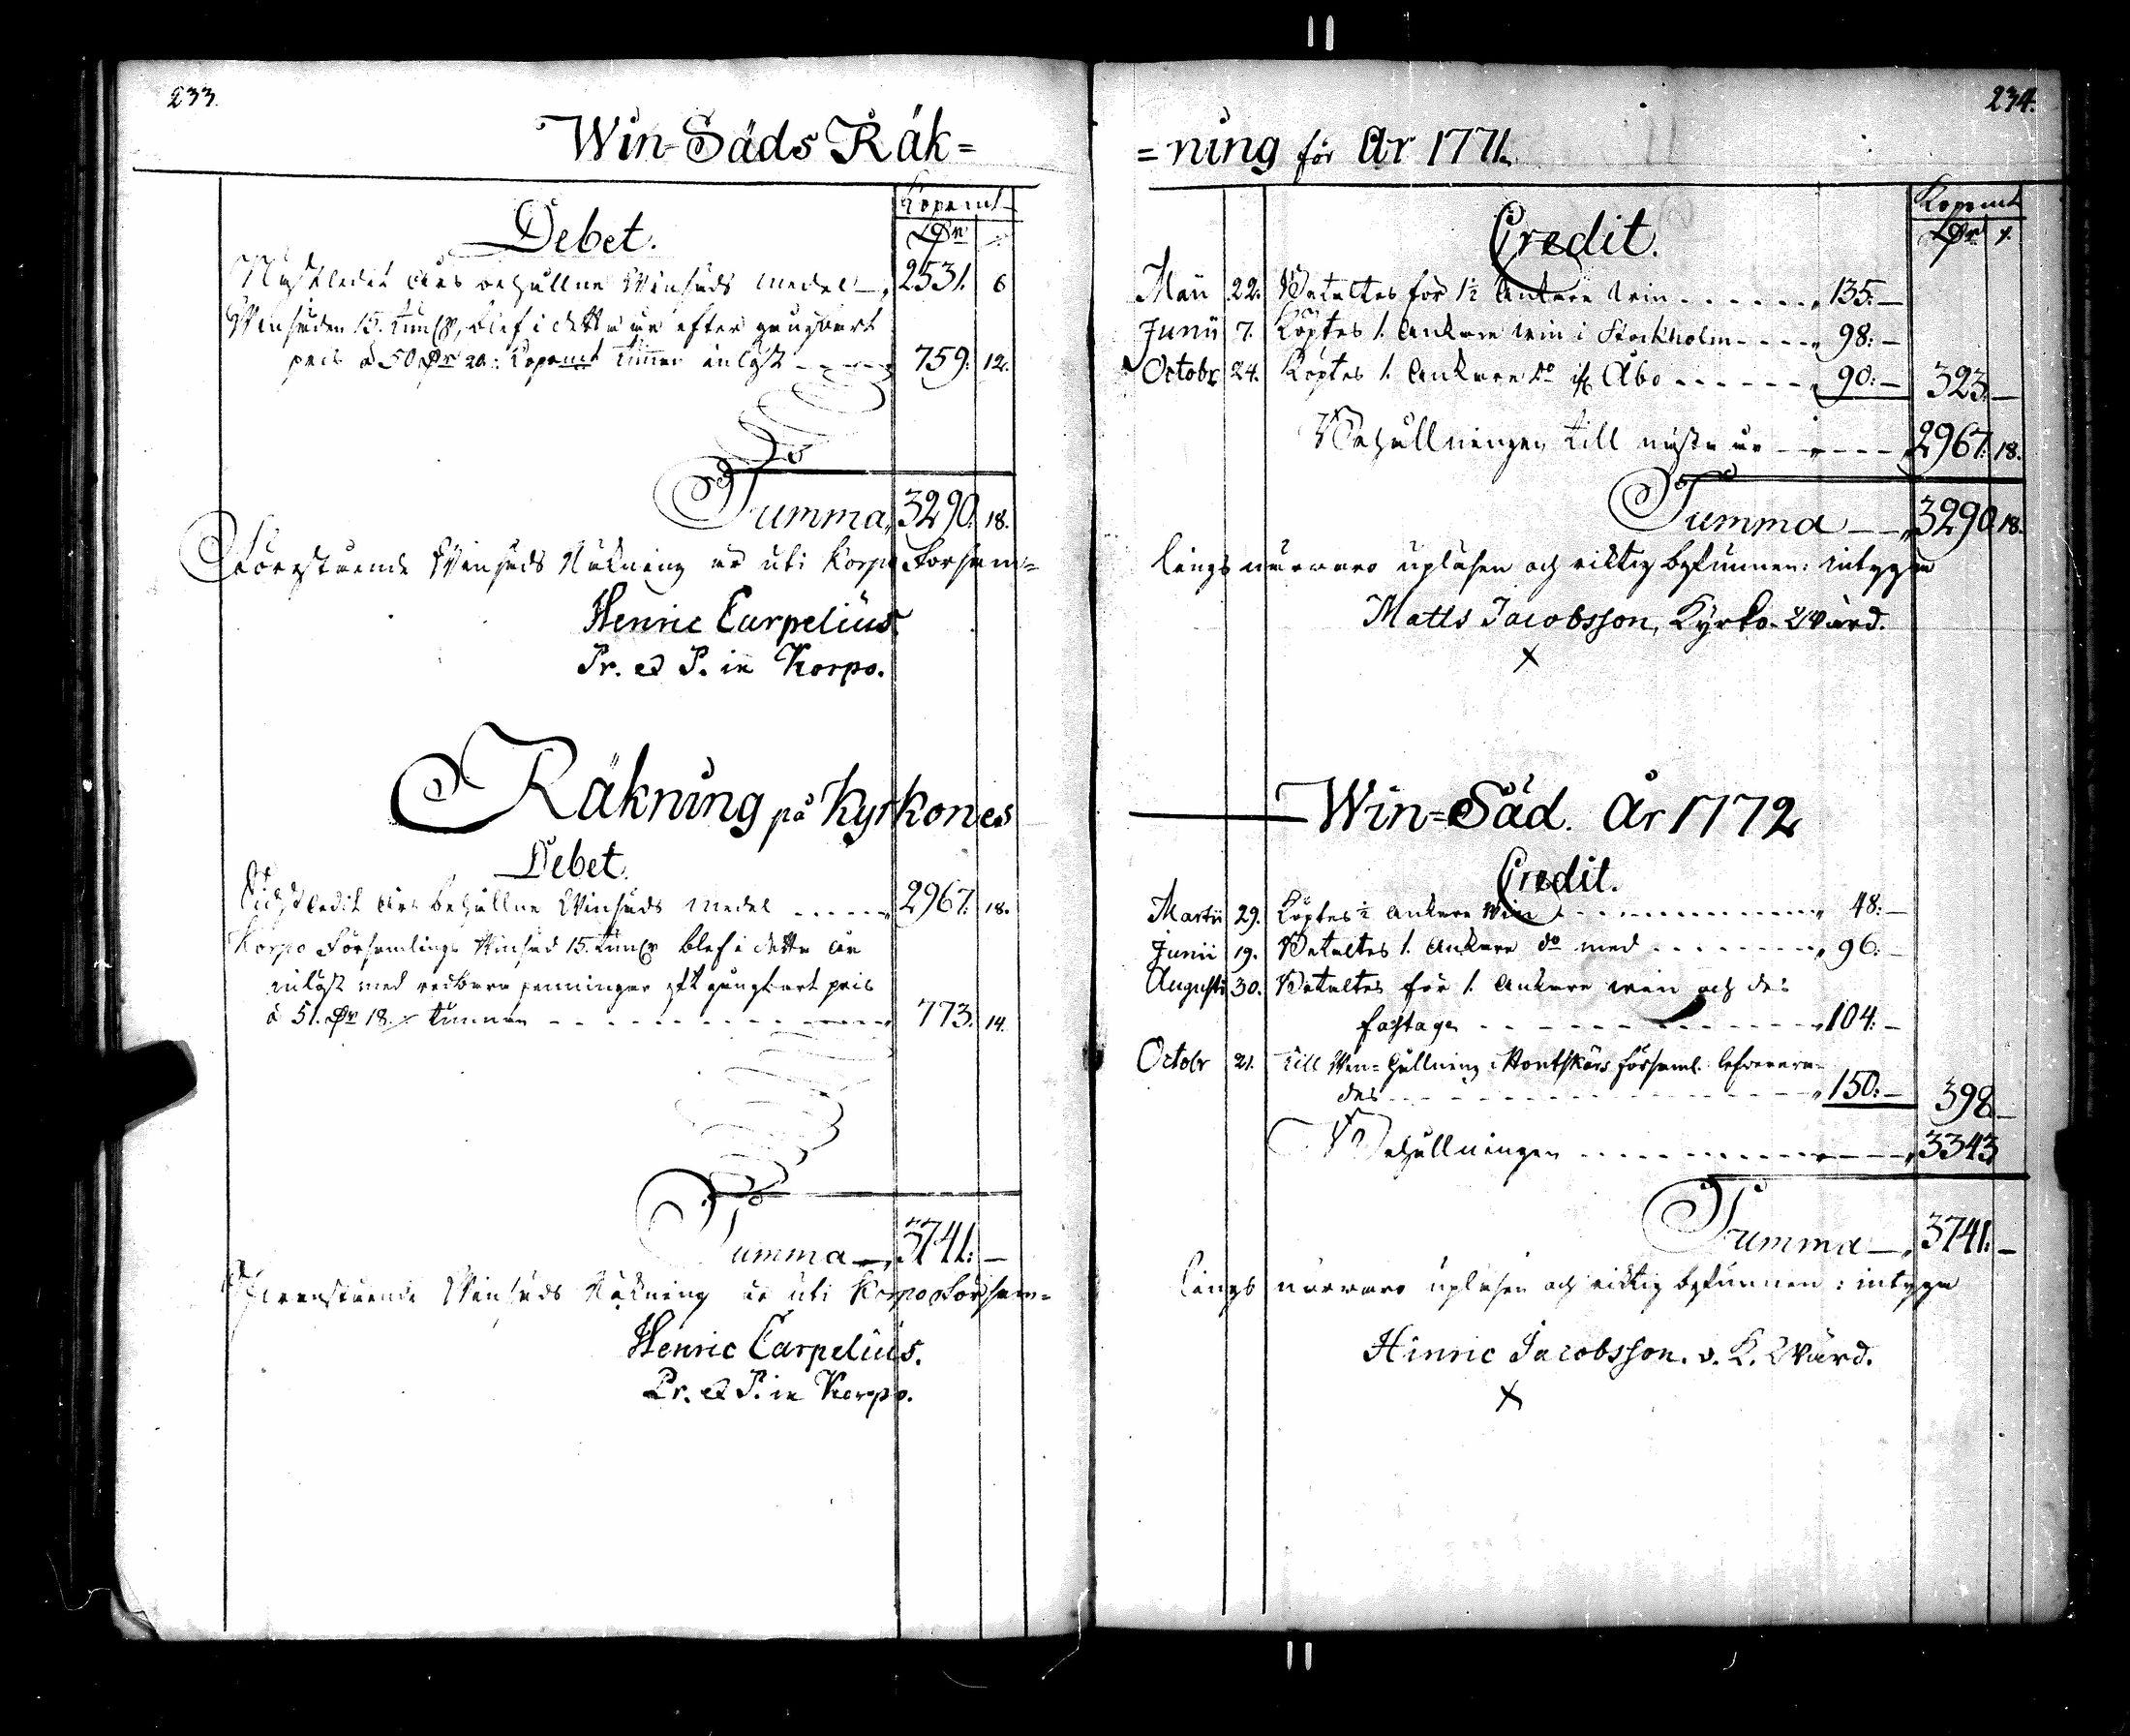 233.
Win-Säds Räk=
Debet.
Kopp.mt
Dr
Nästledit års behållne Winsäds medel 2531. 6
Winsäden 15. tun, blef i detta år efter gångbart
pris à 50 Dr 20: Kopp.mt tunnan inlöst 759: 12.
Summa 3290. 18.
Förestående Winsäds Räkning är uti Korpo Försam=
Henric Carpelius
Pr. et P. in Korpo.
Räkning på Kyrkones
Debet.
Sidstledit års behållne Winsäds medel 2967. 18.
Korpo Församlings Winsäd 15. tun blef i detta år
inlöst med redbara penningar gångbart pris
à 51. Dr 18. tunnan 773. 14.
Summa 3741. —
Förenstående Winsäds Räkning är uti Korpo Försam=
Henric Carpelius.
Pr. et P. in Korpo.
234.
=ning för År 1771.
Credit.
Kopp.mt
Dr
Maii 22. Betaltes för 1½ Ankare win 135: —
Junii 7. Köptes 1. Ankare win i Stockholm 98: —
Octobr 24. Köptes 1. Ankare do Åbo 90: — 323. —
Behållningen till nästa år 2967. 18.
Summa 3290. 18.
lings närwaro upläsen och riktig befunnen: intyga
Matts Jacobsson, Kyrko-Wärd.
X
Win=Säd. År 1772
Credit.
Martii 29. Köptes ½ Ankare Win 48: —
Junii 19. Betaltes 1. Ankare do med 96: —
Augusti 30. Betaltes för 1. Ankare win och des
fastage 104: —
Octobr 21. Till Win=hållning i Houtskärs Församl. lefwerera=
des 150: — 398. —
Behållningen 3343
Summa 3741: —
lings närwaro upläsen och riktig befunnen: intyga
Hinric Jacobsson. v. K. Wärd.
X